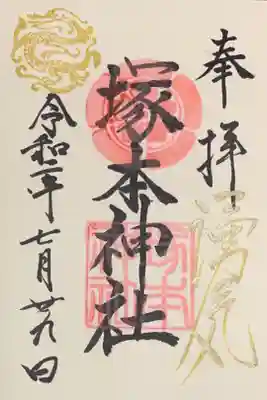 奉拝
塚本神社
令和二年七月廿九日